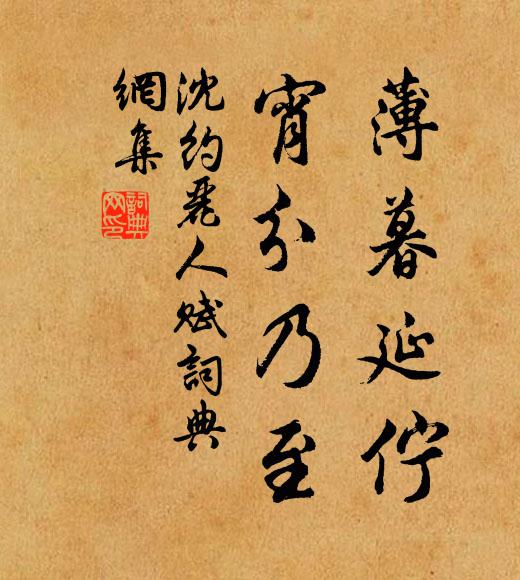 薄暮延佇
宵分乃至
沈約麗人賦詞典
網集
詞典
网印